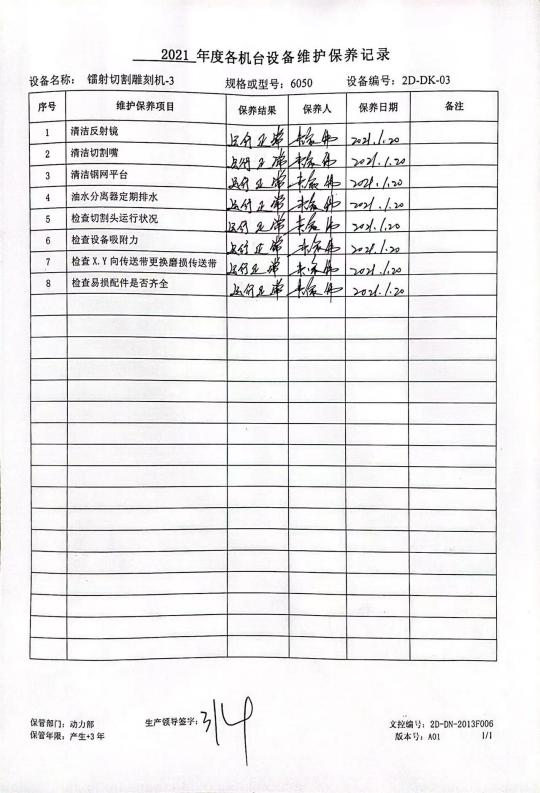 2021 年度各机台设备维护保养记录
设备名称： 镭射切割雕刻机-3 规格或型号：6050 设备编号：2D-DK-03
序号 维护保养项目 保养结果 保养人 保养日期 备注
1 清洁反射镜 运行正常 2021.1.20
2 清洁切割嘴 运行正常 2021.1.20
3 清洁钢网平台 运行正常 2021.1.20
4 油水分离器定期排水 运行正常 2021.1.20
5 检查切割头运行状况 运行正常 2021.1.20
6 检查设备吸附力 运行正常 2021.1.20
7 检查X.Y向传送带更换磨损传送带 运行正常 2021.1.20
8 检查易损配件是否齐全 运行正常 2021.1.20
保管部门：动力部 生产领导签字： 文控编号：2D-DN-2013F006
保管年限：产生+3 年 版本号：A01 1/1